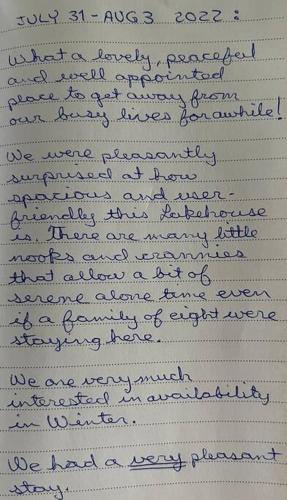 JULY 31 - AUG 3 2022 :
What a lovely, peaceful
and well appointed
place to get away from
our busy lives for awhile!
We were pleasantly
surprised at how
spacious and user-
friendly this Lakehouse
is. There are many little
nooks and crannies
that allow a bit of
serene alone time even
if a family of eight were
staying here.
We are very much
interested in availability
in Winter.
We had a very pleasant
stay.